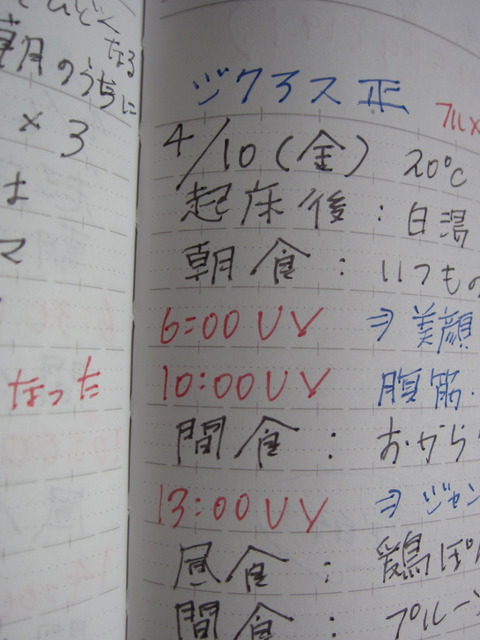 ひどく
なる
朝のうちに
× 3
は
マ
なった
ジクロス 正
フルメ
4/10(金) 20℃
起床後:白湯
朝食:いつもの
6:00 UV ⇒ 美顔
10:00 UV 腹筋.
間食:おから
13:00 UV ⇒ ジャン
昼食:鶏ぽん
間食:プルーン